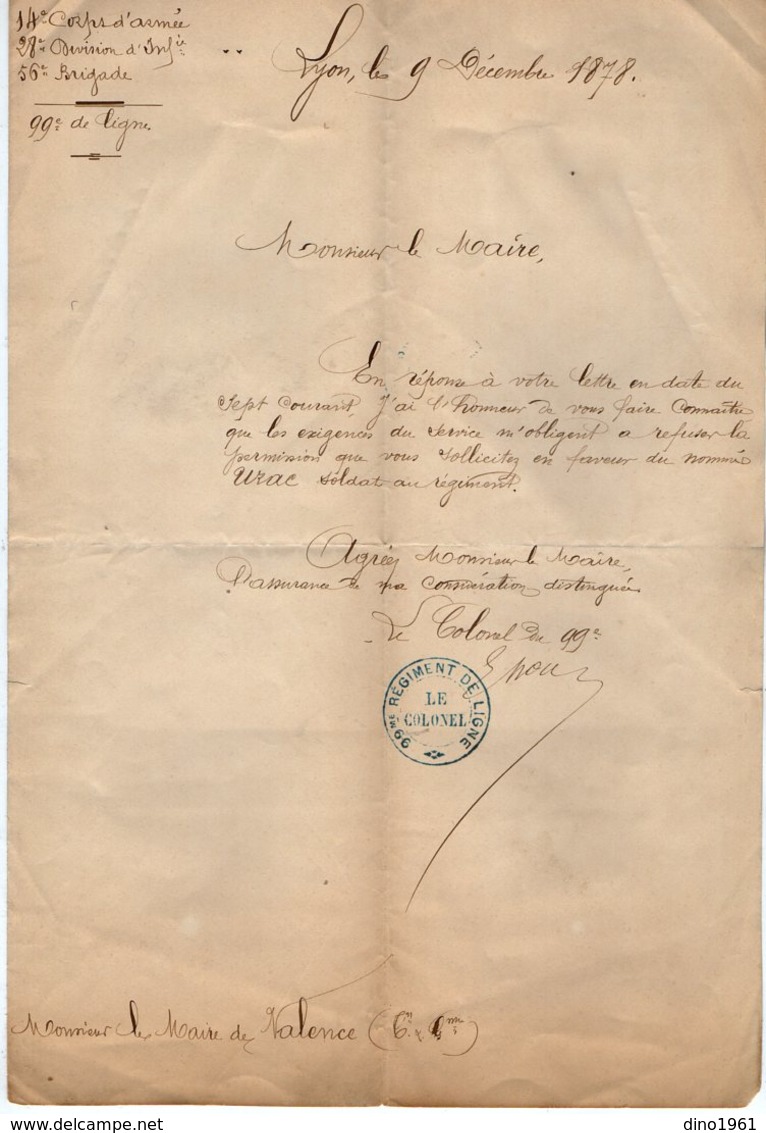 14e Corps d'armée
28e Division d'Infie
56e Brigade
99e de Ligne.
Lyon, le 9 Décembre 1878.
Monsieur le Maire,
En réponse à votre lettre en date du
Sept courant, J'ai l'honneur de vous faire connaître
que les exigences du service m'obligent a refuser la
permission que vous sollicitez en faveur du nommé
Urac soldat au régiment.
Agréez Monsieur le Maire,
l'assurance de ma considération distinguée.
Le Colonel du 99e
99ME RÉGIMENT DE LIGNE
LE
COLONEL
Monsieur le Maire de Valence
delcampe.net
dino1961